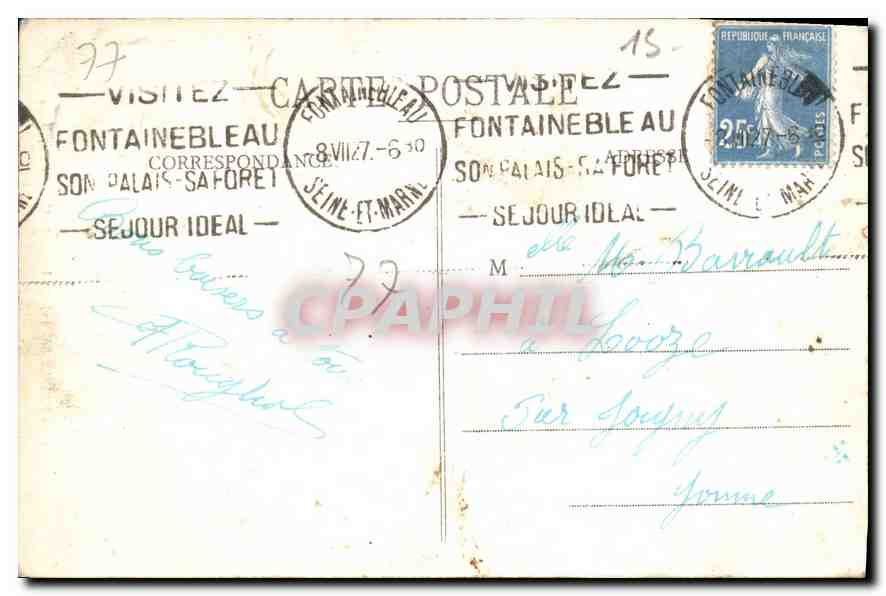 77
15-
CARTE POSTALE
CORRESPONDANCE
ADRESSE
VISITEZ
FONTAINEBLEAU
SON PALAIS-SA FORET
SEJOUR IDEAL
FONTAINEBLEAU
8 VII 27.-6 30
SEINE-ET-MARNE
VISITEZ
FONTAINEBLEAU
SON PALAIS-SA FORET
SEJOUR IDEAL
FONTAINEBLEAU
VII 27.-6 30
SEINE ET MAR
REPUBLIQUE FRANÇAISE
25c
POSTES
Bons baisers à
77
M elle Barrault
a Looze
Sur Joigny
Yonne
CPAPHIL